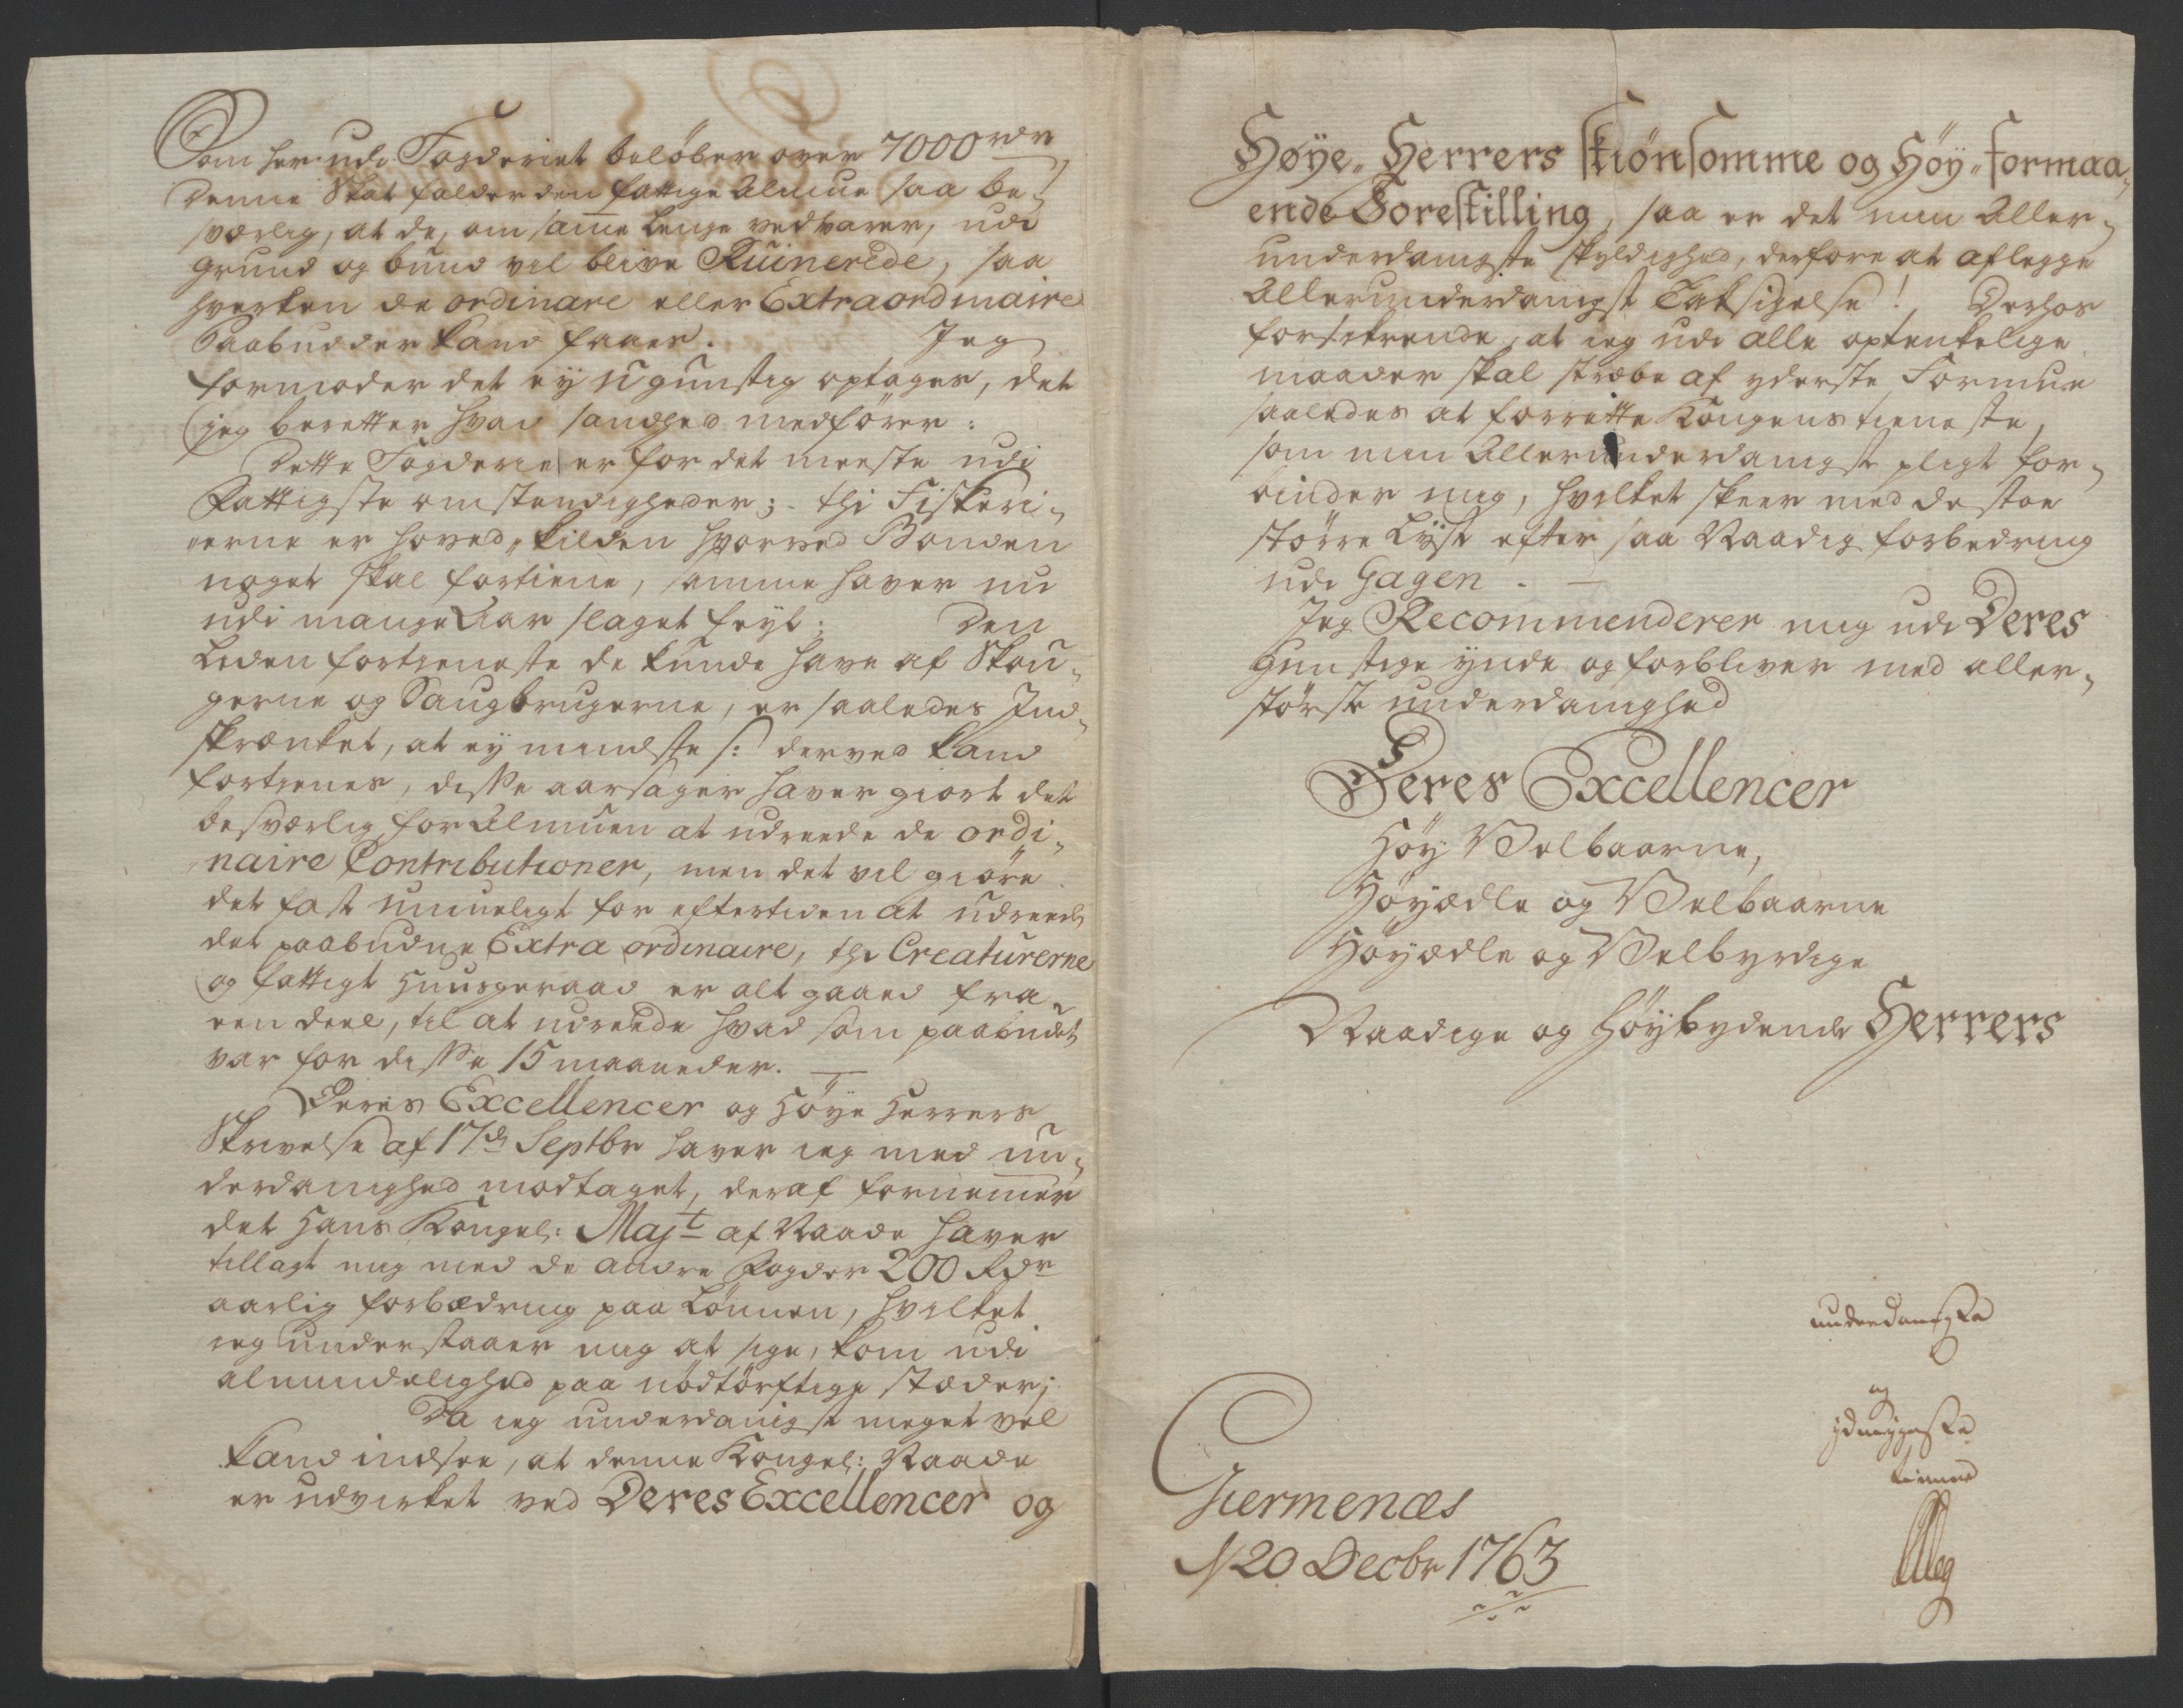 Som her udi Fogderiet beløber over 7000 rdr
Denne Skat falder den fattige Almue saa be-
sværlig, at de, om samme lenge vedvarer, udi
grund og bund vil blive Ruinerede, saa
hverken de ordinare eller Extraordinaire
Paabudder kand faaes. Jeg
formoder det ey ugunstig optages, det
jeg beretter hvad sandhed medfører:
Dette Fogderie er for det meeste udi
Fattigste omstendigheder; thi Fiskeri-
erne er hoved-kilden hvorved Bonden
noget skal fortiene, samme haver nu
udi mange Aar slaget feyl; Den
Liden fortieneste de kunde have af Skou-
gerne og Saugbrugerne, er saaledes Ind-
skrænket, at ey mindste s: derved kand
fortienes, disse aarsager haver giort det
besværlig for Almuen at udreede de ordi-
naire Contributioner, men det vil giøre
det fast umueligt for eftertiden at udreede
det paabudne Extra ordinaire, thi Creaturerne
og fattigt Huusgeraad er alt gaaed fra
een deel, til at udreede hvad som paabudet
var for disse 15 maaneder. —
Deres Excellencer og Høye Herrers
Skrivelse af 17de Septbr haver ieg med un-
derdanighed modtaget, deraf fornemmer
det Hans Kongel: Majt af Naade haver
tillagt mig med de andre Fogder 200 Rdr
aarlig forbædring paa Lønnen, hvilket
ieg understaaer mig at sige, kom udi
almindelighed paa nødtørftige stæder;
Da ieg underdanigst meget vel
kand indsee, at denne Kongel: Naade
er udvirket ved Deres Excellencer og
Høye-Herrers skiønsomme og Høy-formaa-
ende Forestilling, saa er det min Aller-
underdanigste skyldighed, derfore at aflegge
Allerunderdanigst Taksigelse! Derhos
forsikrende, at ieg udi alle optenkelige
maader skal stræbe af yderste Formue
saaledes at forrette Kongens tieneste,
som min Allerunderdanigste pligt for-
binder mig, hvilket skeer med desto
større Lyst efter saa Naadig forbedring
udi Gagen. —
Jeg Recommenderer mig udi Deres
Gunstige ynde og forbliver med aller-
største underdanighed
Deres Excellencer
Høy Velbaarne,
Høyædle og Velbaarne
Høyædle og Velbyrdige
Naadige og Høybydende Herrers
underdanigste
og
ydmygeste
tiener
Giermenæs
d 20 Decbr 1763